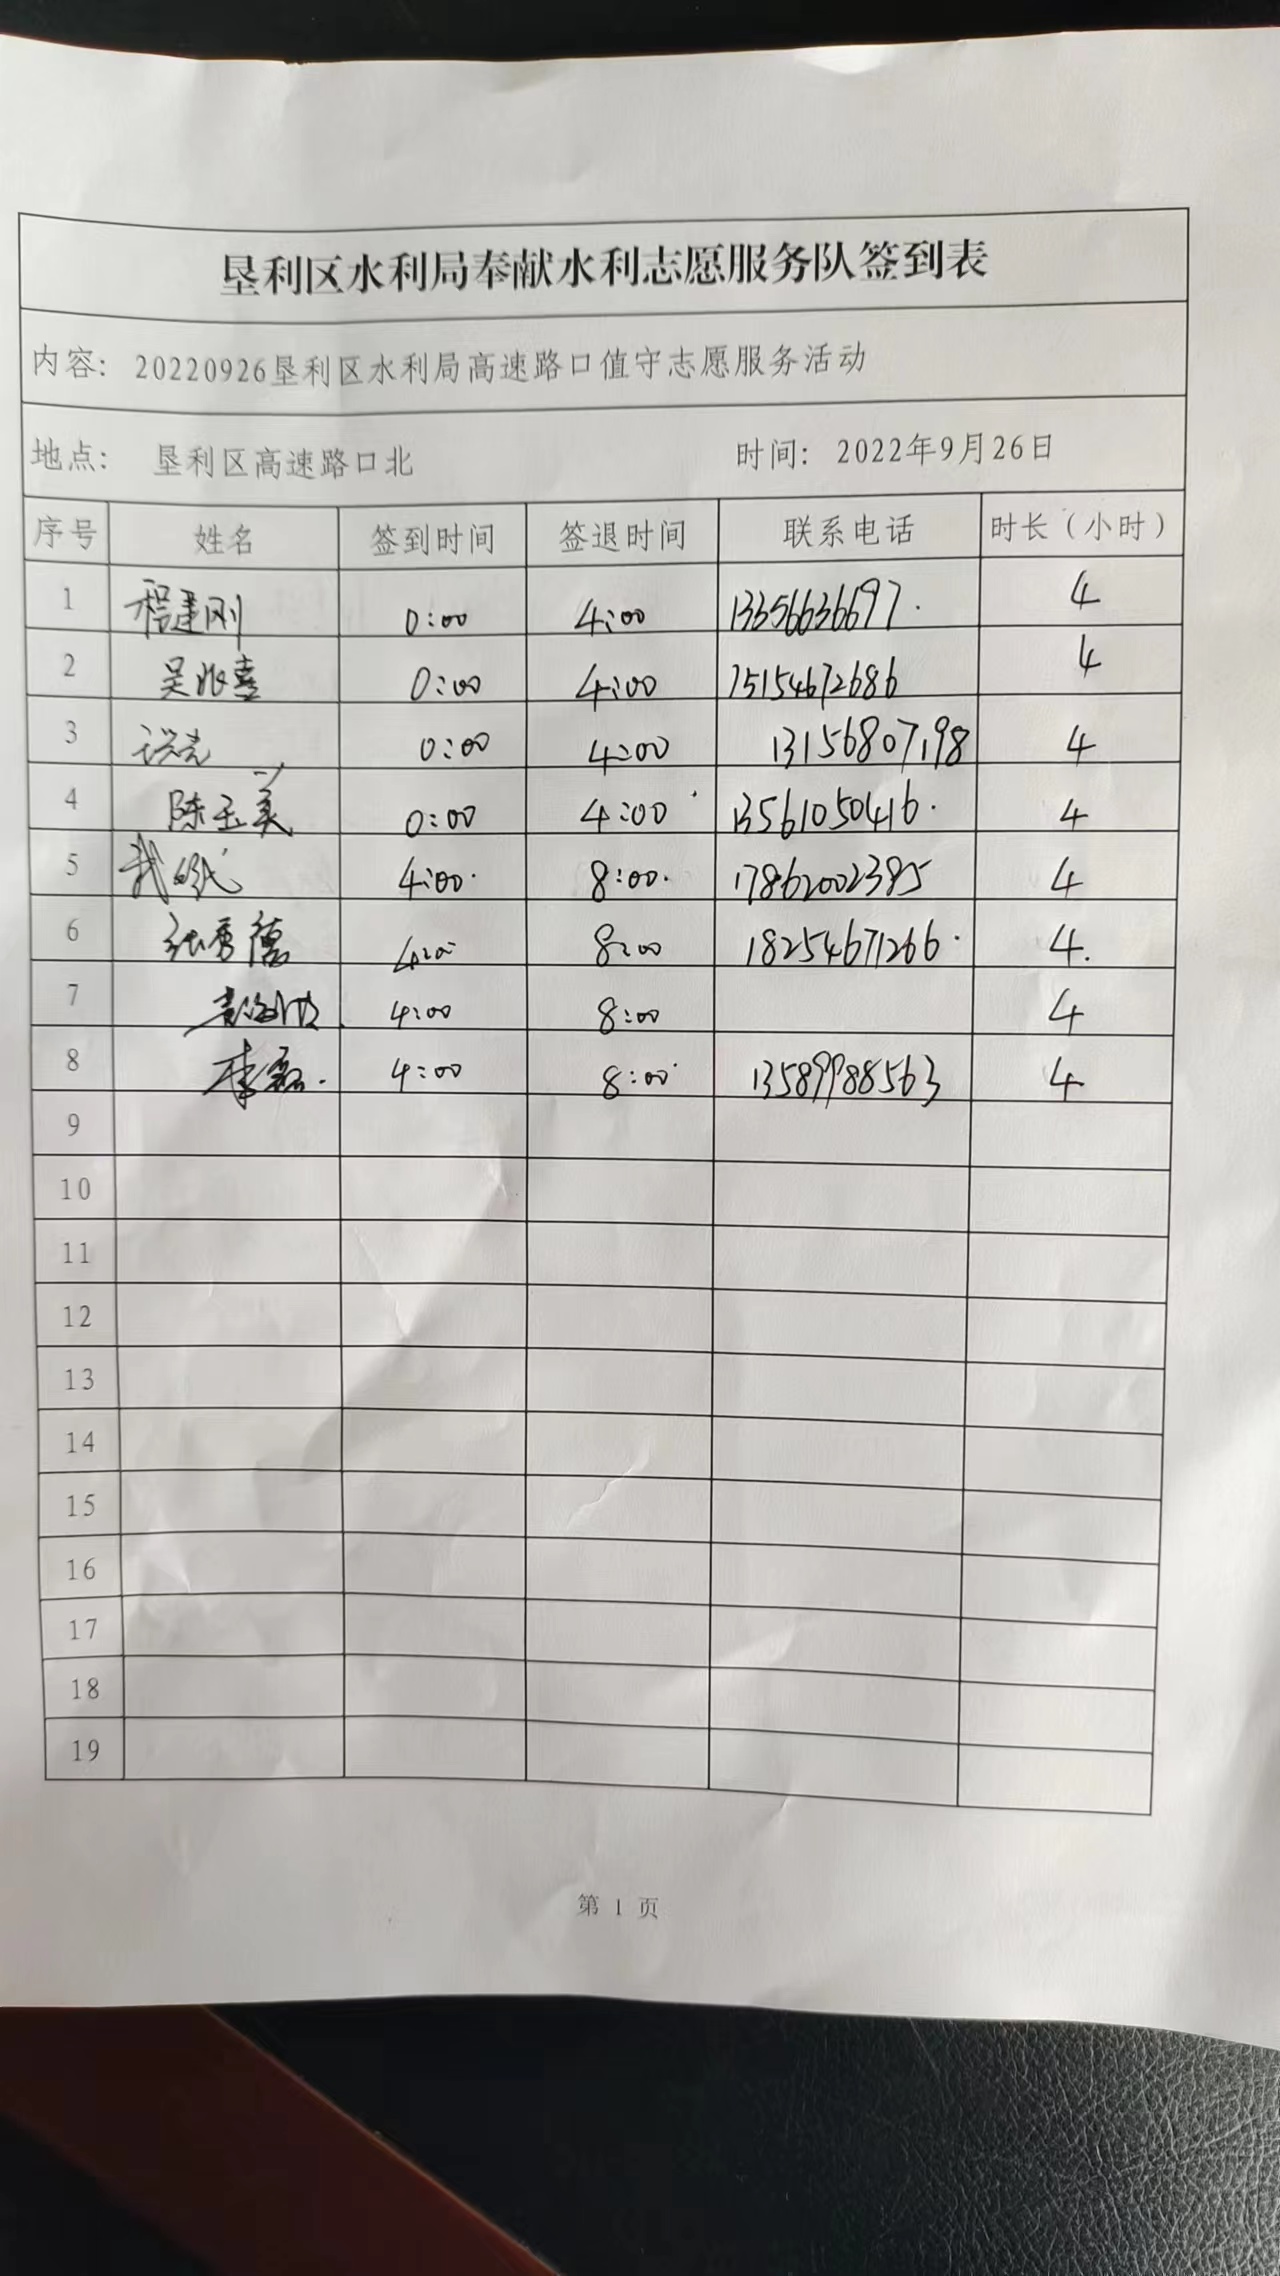 垦利区水利局奉献水利志愿服务队签到表
内容: 20220926垦利区水利局高速路口值守志愿服务活动
地点: 垦利区高速路口北 时间: 2022年9月26日
序号 姓名 签到时间 签退时间 联系电话 时长（小时）
1 程建刚 0:00 4:00 13356636697. 4
2 吴兆喜 0:00 4:00 15154672686 4
3 0:00 4:00 13156807198 4
4 陈玉美 0:00 4:00 13561050416. 4
5 4:00. 8:00. 17862002395 4
6 张秀德 4:00 8:00 18254671266. 4.
7 4:00 8:00 4
8 李磊. 4:00 8:00 13589988563 4
9
10
11
12
13
14
15
16
17
18
19
第 1 页